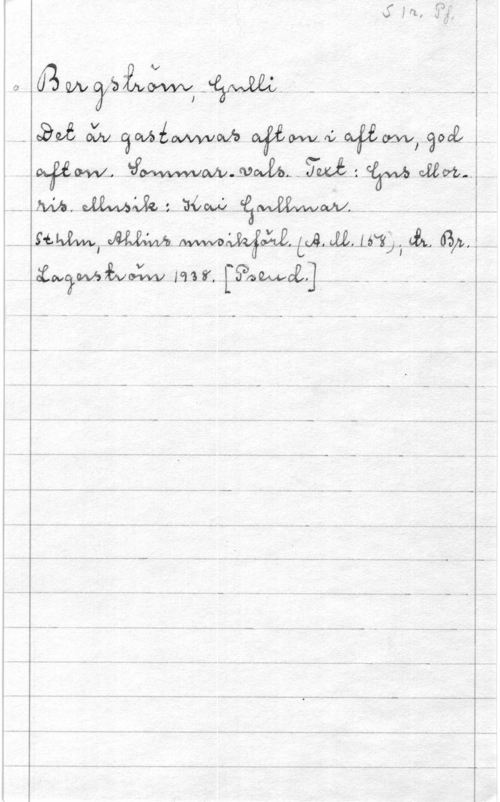 S 1 r. Pf.
Bergström, Gulli
Det är gastarnas afton i afton, god
afton. Sommar-vals. Text: Gus Mor-
ris. Musik: Kai Gullmar.
Sthlm, Ahlins musikförl. (A. M. 158); tr. Br.
Lagerström 1938. [Pseud.]